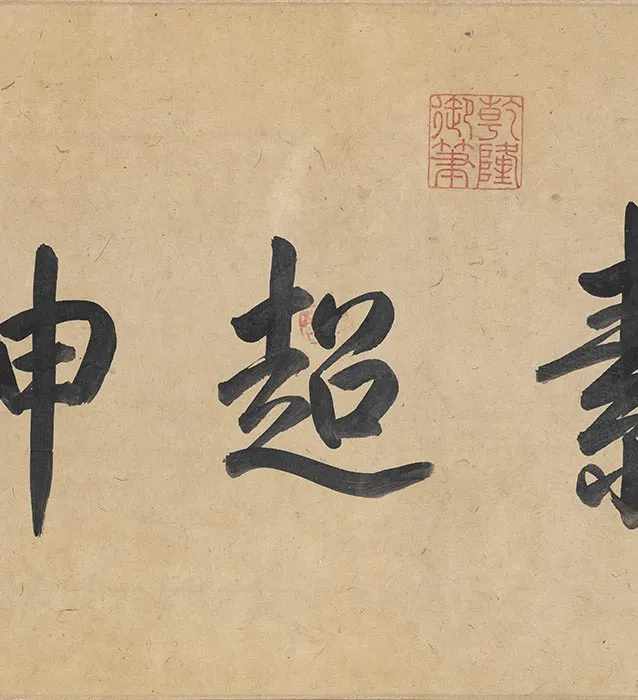 素超神
乾隆御筆